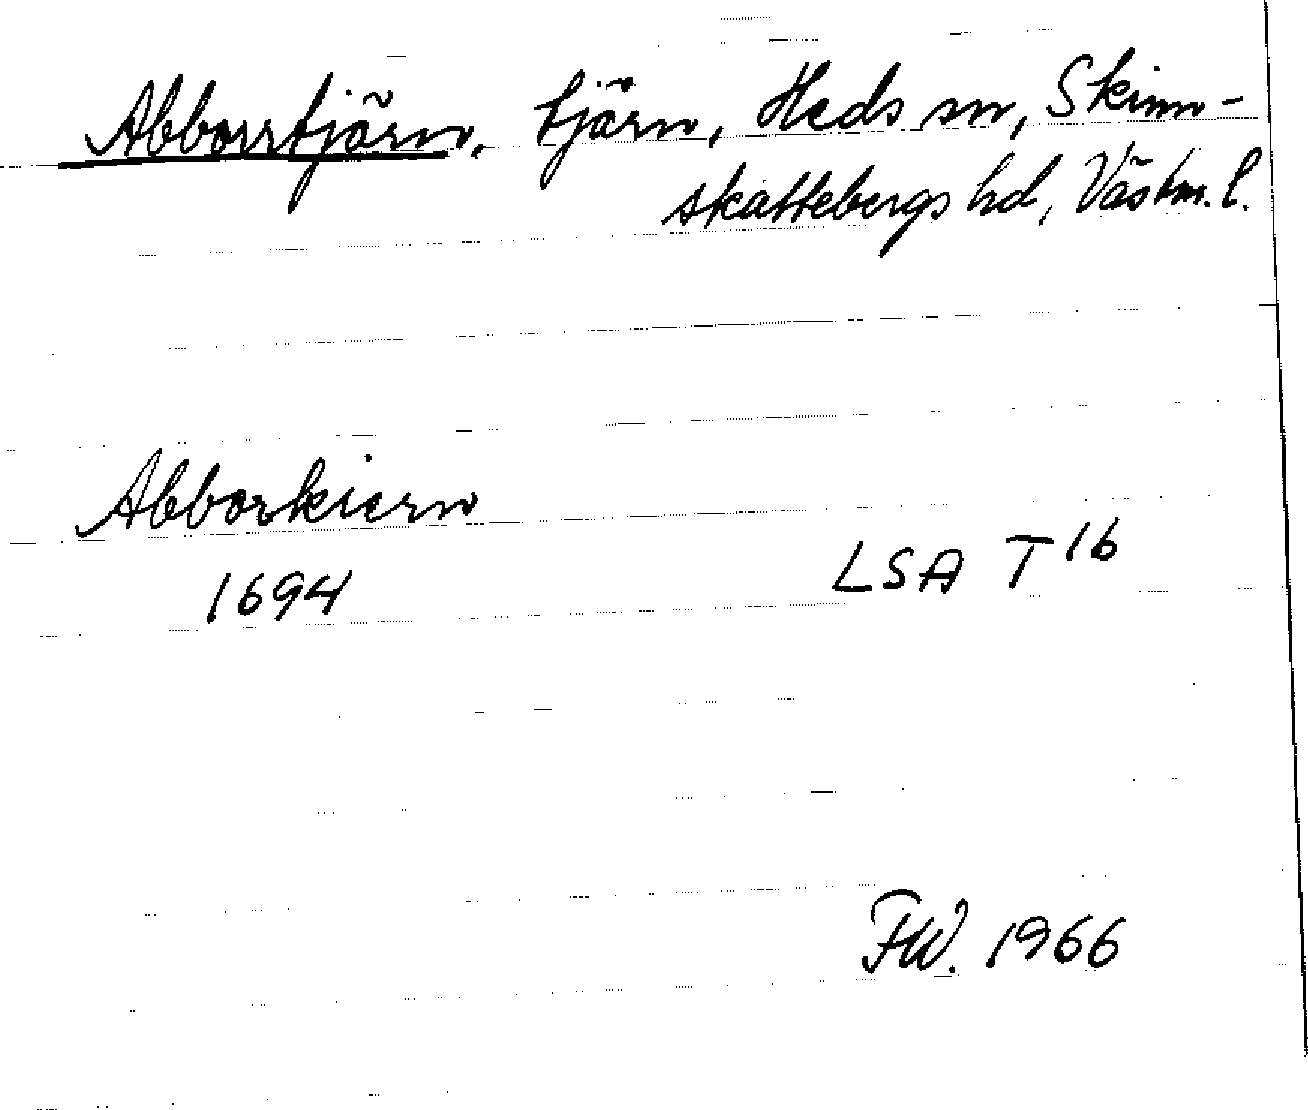 Abborrtjärn, tjärn, Heds sn, Skinn-
skattebergs hd, Västm. l.
Abborkiern
1694 LSA T 16
FW. 1966